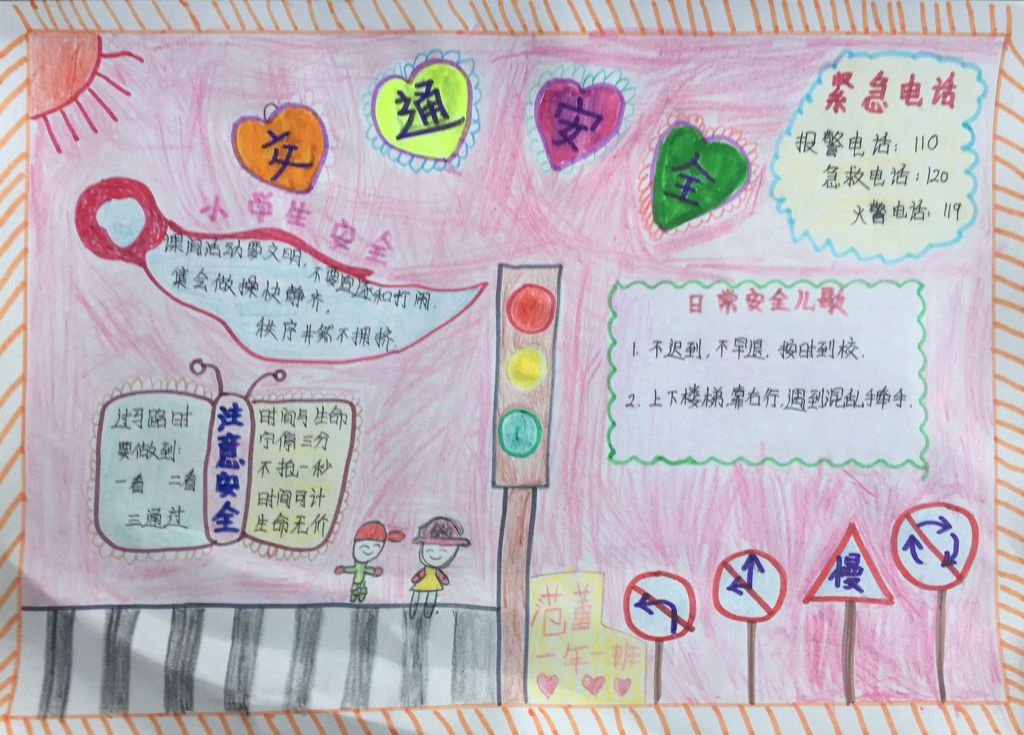 交通安全
紧急电话
报警电话：110
急救电话：120
火警电话：119
小学生安全
课间活动要文明，不要追逐和打闹.
集会做操快静齐，
秩序井然不拥挤.
日常安全儿歌
1. 不迟到，不早退，按时到校.
2. 上下楼梯，靠右行，遇到混乱手牵手.
过马路时
要做到：
一看 二看
三通过
注意安全
时间与生命
宁停三分
不抢一秒
时间可计
生命无价
慢
范董
一年一班